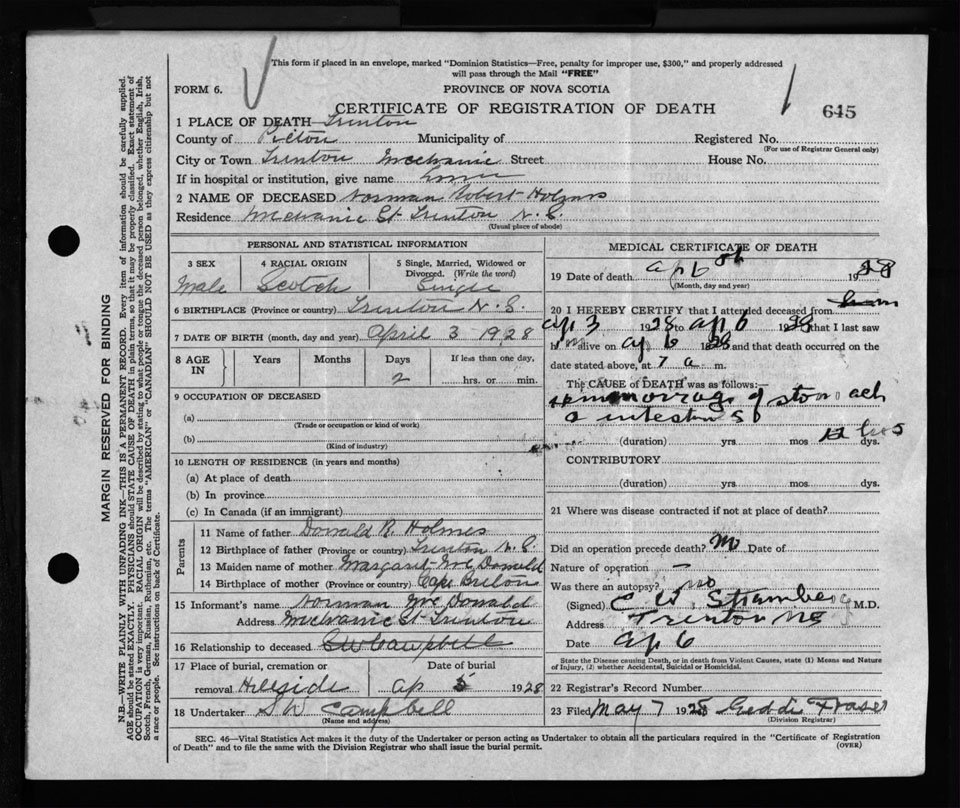 This form if placed in an envelope, marked "Dominion Statistics—Free, penalty for improper use, $300," and properly addressed
will pass through the Mail "FREE"
FORM 6.
PROVINCE OF NOVA SCOTIA
CERTIFICATE OF REGISTRATION OF DEATH
645
1 PLACE OF DEATH—Trenton
County of Pictou Municipality of Registered No.
(For use of Registrar General only)
City or Town Trenton Mechanic Street House No.
If in hospital or institution, give name
2 NAME OF DECEASED Norman Robert Holmes
Residence Mechanic St Trenton N.S.
(Usual place of abode)
PERSONAL AND STATISTICAL INFORMATION
3 SEX
Male
4 RACIAL ORIGIN
Scotch
5 Single, Married, Widowed or
Divorced. (Write the word)
Single
6 BIRTHPLACE (Province or country) Trenton N.S.
7 DATE OF BIRTH (month, day and year) April 3 1928
8 AGE IN
Years
Months
Days
2
If less than one day,
hrs. or min.
9 OCCUPATION OF DECEASED
(a)
(Trade or occupation or kind of work)
(b)
(Kind of industry)
10 LENGTH OF RESIDENCE (in years and months)
(a) At place of death
(b) In province
(c) In Canada (if an immigrant)
Parents
11 Name of father Donald R. Holmes
12 Birthplace of father (Province or country) Trenton N.S.
13 Maiden name of mother Margaret McDonald
14 Birthplace of mother (Province or country) Cape Breton
15 Informant's name Norman McDonald
Address Mechanic St Trenton
16 Relationship to deceased SW Campbell
17 Place of burial, cremation or
removal Hillside
Date of burial
Ap 5 1928
18 Undertaker SW Campbell
(Name and address)
MEDICAL CERTIFICATE OF DEATH
19 Date of death Ap 6th 1928
(Month, day and year)
20 I HEREBY CERTIFY that I attended deceased from
Ap 3 1928 to Ap 6 1928 that I last saw
him alive on Ap 6 1928 and that death occurred on the
date stated above, at 7 a m.
The CAUSE of DEATH was as follows:—
Hemmorrage of stomach
& intestines
(duration) yrs. mos dys.
CONTRIBUTORY
(duration) yrs. mos. dys.
21 Where was disease contracted if not at place of death?
Did an operation precede death? No Date of
Nature of operation —
Was there an autopsy? no
(Signed) M.D.
Address Trenton NS
Date Ap 6
State the Disease causing Death, or in death from Violent Causes, state (1) Means and Nature
of Injury, (2) whether Accidental, Suicidal or Homicidal.
22 Registrar's Record Number
23 Filed May 7 1928 Geddie Fraser
(Division Registrar)
SEC. 46—Vital Statistics Act makes it the duty of the Undertaker or person acting as Undertaker to obtain all the particulars required in the "Certificate of Registration
of Death" and to file the same with the Division Registrar who shall issue the burial permit.
(OVER)
MARGIN RESERVED FOR BINDING
N.B.—WRITE PLAINLY WITH UNFADING INK—THIS IS A PERMANENT RECORD. Every item of information should be carefully supplied.
AGE should be stated EXACTLY. PHYSICIANS should STATE CAUSE OF DEATH in plain terms, so that it may be properly classified. Exact statement of
OCCUPATION is very important. RACIAL ORIGIN will be described by stating to what people or tongue the deceased person belonged, whether English, Irish,
Scotch, French, German, Russian, Ruthenian, etc. The terms "AMERICAN" or "CANADIAN" SHOULD NOT BE USED as they express citizenship but not
a race or people. See instructions on back of Certificate.